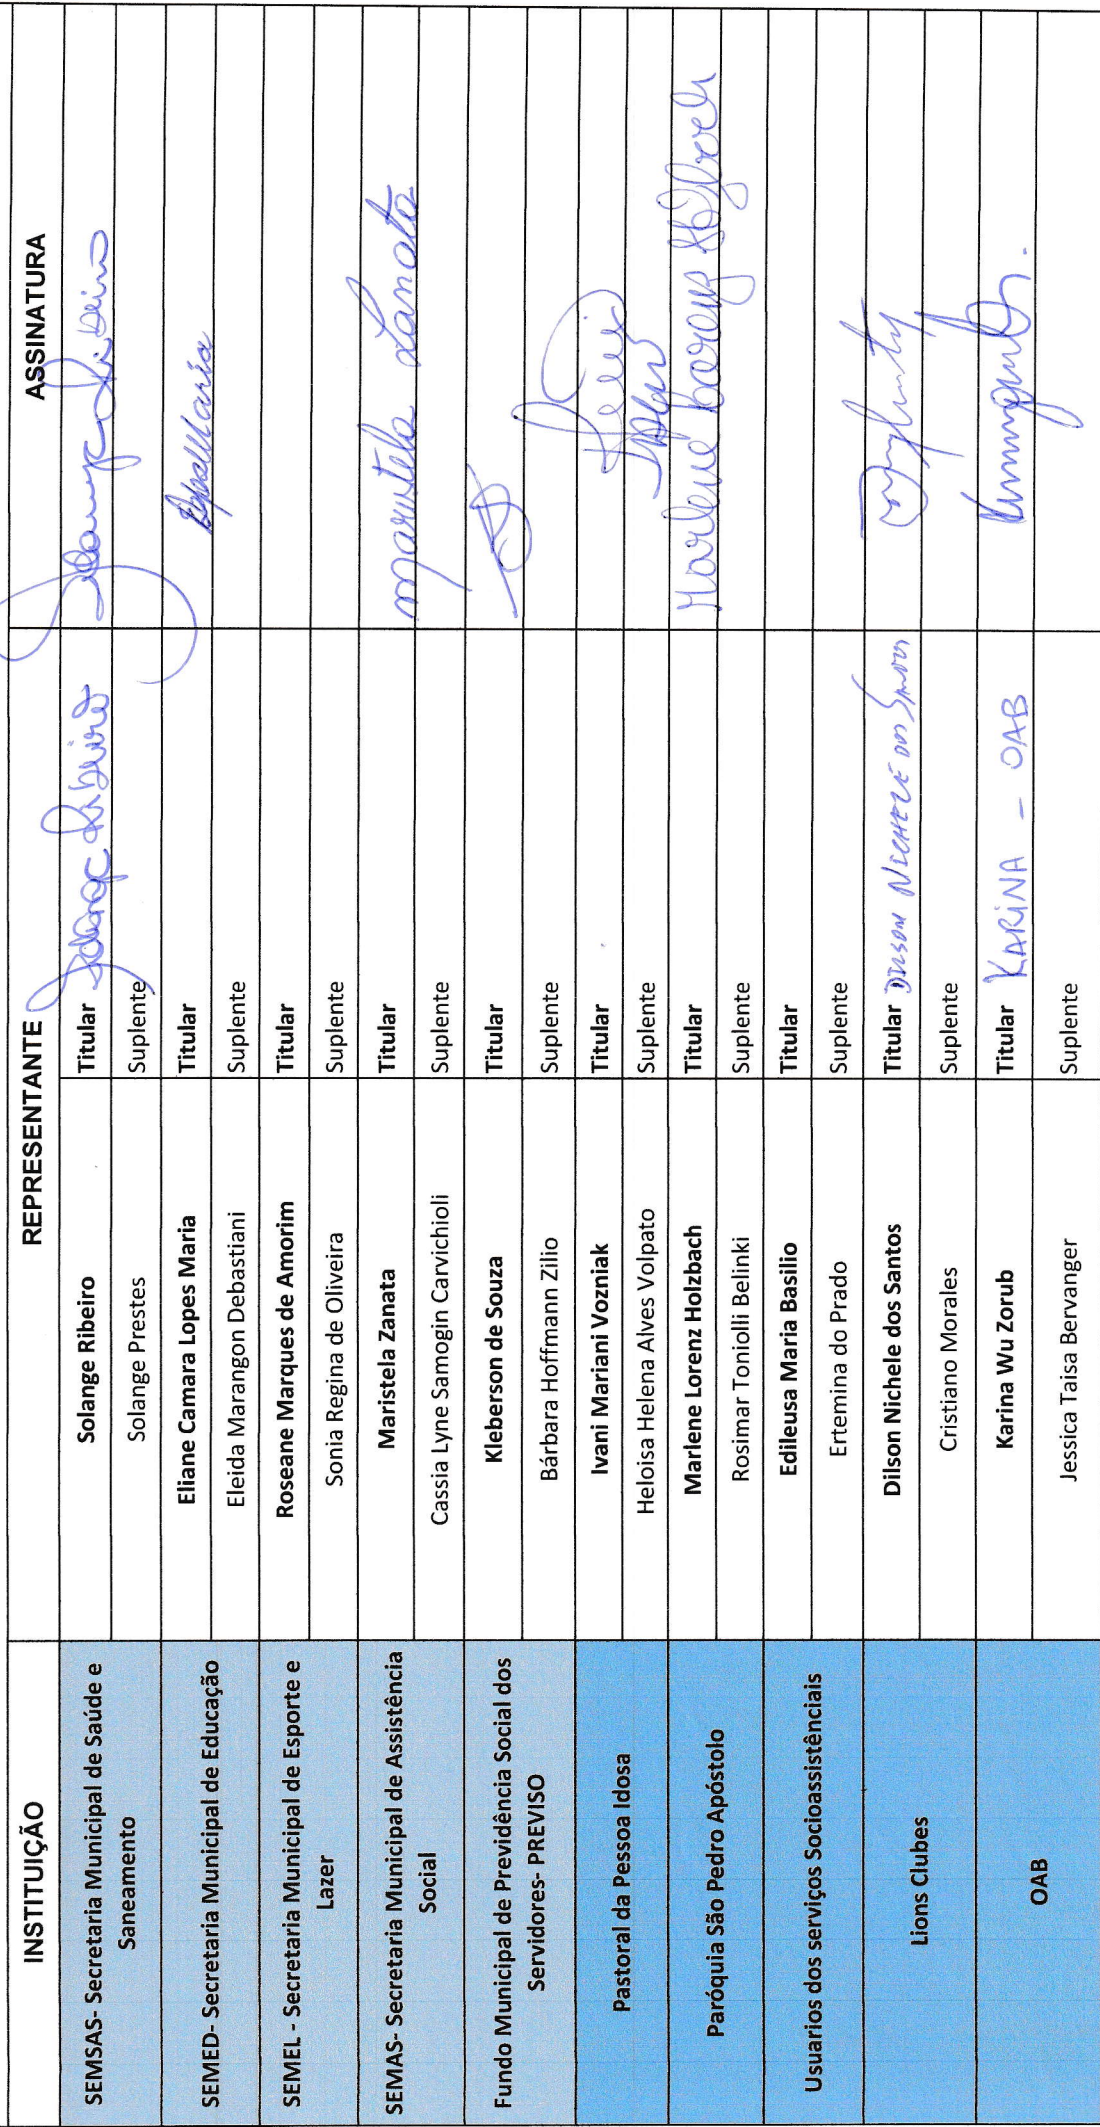 INSTITUIÇÃO REPRESENTANTE ASSINATURA
SEMSAS- Secretaria Municipal de Saúde e
Saneamento
Solange Ribeiro Titular Solange Ribeiro Solange Ribeiro
Solange Prestes Suplente
SEMED- Secretaria Municipal de Educação
Eliane Camara Lopes Maria Titular
Eleida Marangon Debastiani Suplente
SEMEL - Secretaria Municipal de Esporte e
Lazer
Roseane Marques de Amorim Titular
Sonia Regina de Oliveira Suplente
SEMAS- Secretaria Municipal de Assistência
Social
Maristela Zanata Titular Maristela Zanata
Cassia Lyne Samogin Carvichioli Suplente
Fundo Municipal de Previdência Social dos
Servidores- PREVISO
Kleberson de Souza Titular
Bárbara Hoffmann Zilio Suplente
Pastoral da Pessoa Idosa
Ivani Mariani Vozniak Titular
Heloisa Helena Alves Volpato Suplente
Paróquia São Pedro Apóstolo
Marlene Lorenz Holzbach Titular Marlene Lorenz Holzbach
Rosimar Toniolli Belinki Suplente
Usuarios dos serviços Socioassistênciais
Edileusa Maria Basilio Titular
Ertemina do Prado Suplente
Lions Clubes
Dilson Nichele dos Santos Titular DILSON NICHELE DOS SANTOS
Cristiano Morales Suplente
OAB
Karina Wu Zorub Titular KARINA - OAB
Jessica Taisa Bervanger Suplente